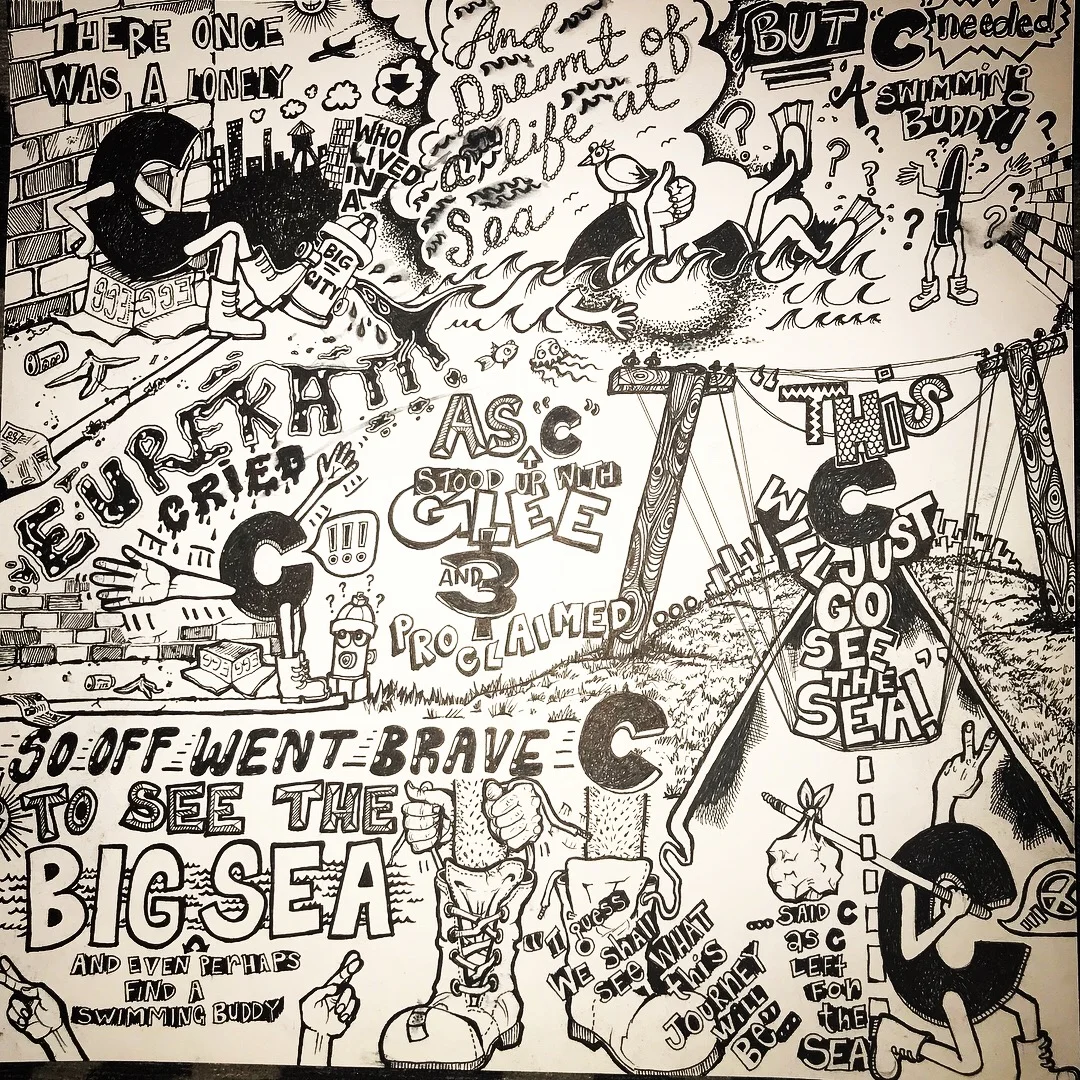 THERE ONCE
WAS A LONELY
C
WHO
LIVED
IN
A
BIG
CITY
And
Dreamt of
a life at
Sea
BUT "C"
needed
A SWIMMING
BUDDY!
"EUREKA!!"
CRIED
C
!!!
AS "C"
STOOD UP WITH
GLEE
AND
PROCLAIMED
"THIS
C
WILL JUST
GO
SEE
THE
SEA!"
SO OFF WENT BRAVE C
TO SEE THE
BIG SEA
AND EVEN PERHAPS
FIND A
SWIMMING BUDDY
"I GUESS
WE Shall
SEE WHAT
this
JOURNEY
WILL
BE"...
...SAID C
as C
LEFT
FOR
the
SEA